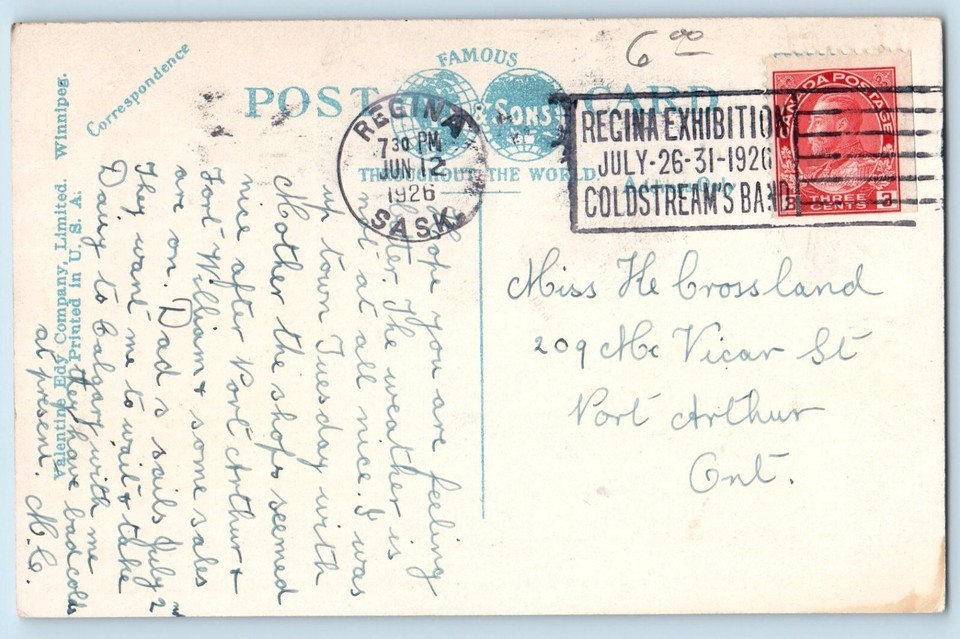 6 00
Correspondence
FAMOUS
POST CARD
& SONS
THROUGHOUT THE WORLD.
REGINA
7 30 PM
JUN 12
1926
SASK.
REGINA EXHIBITION
JULY-26-31-1926
COLDSTREAM'S BAND
CANADA POSTAGE
3 THREE CENTS 3
Valentine Edy Company, Limited. Winnipeg.
Printed in U. S. A.
Hope you are feeling
better. The weather is
not at all nice. I was
up town Tuesday with
Mother the shops seemed
nice after Port Arthur &
Fort William & some sales
are on. Dad's sails July 2nd
They want me to wait & take
Daisy to Calgary with me
they have bad colds
at present. M.C.
Miss He Crossland
209 Mc Vicar St
Port Arthur
Ont.